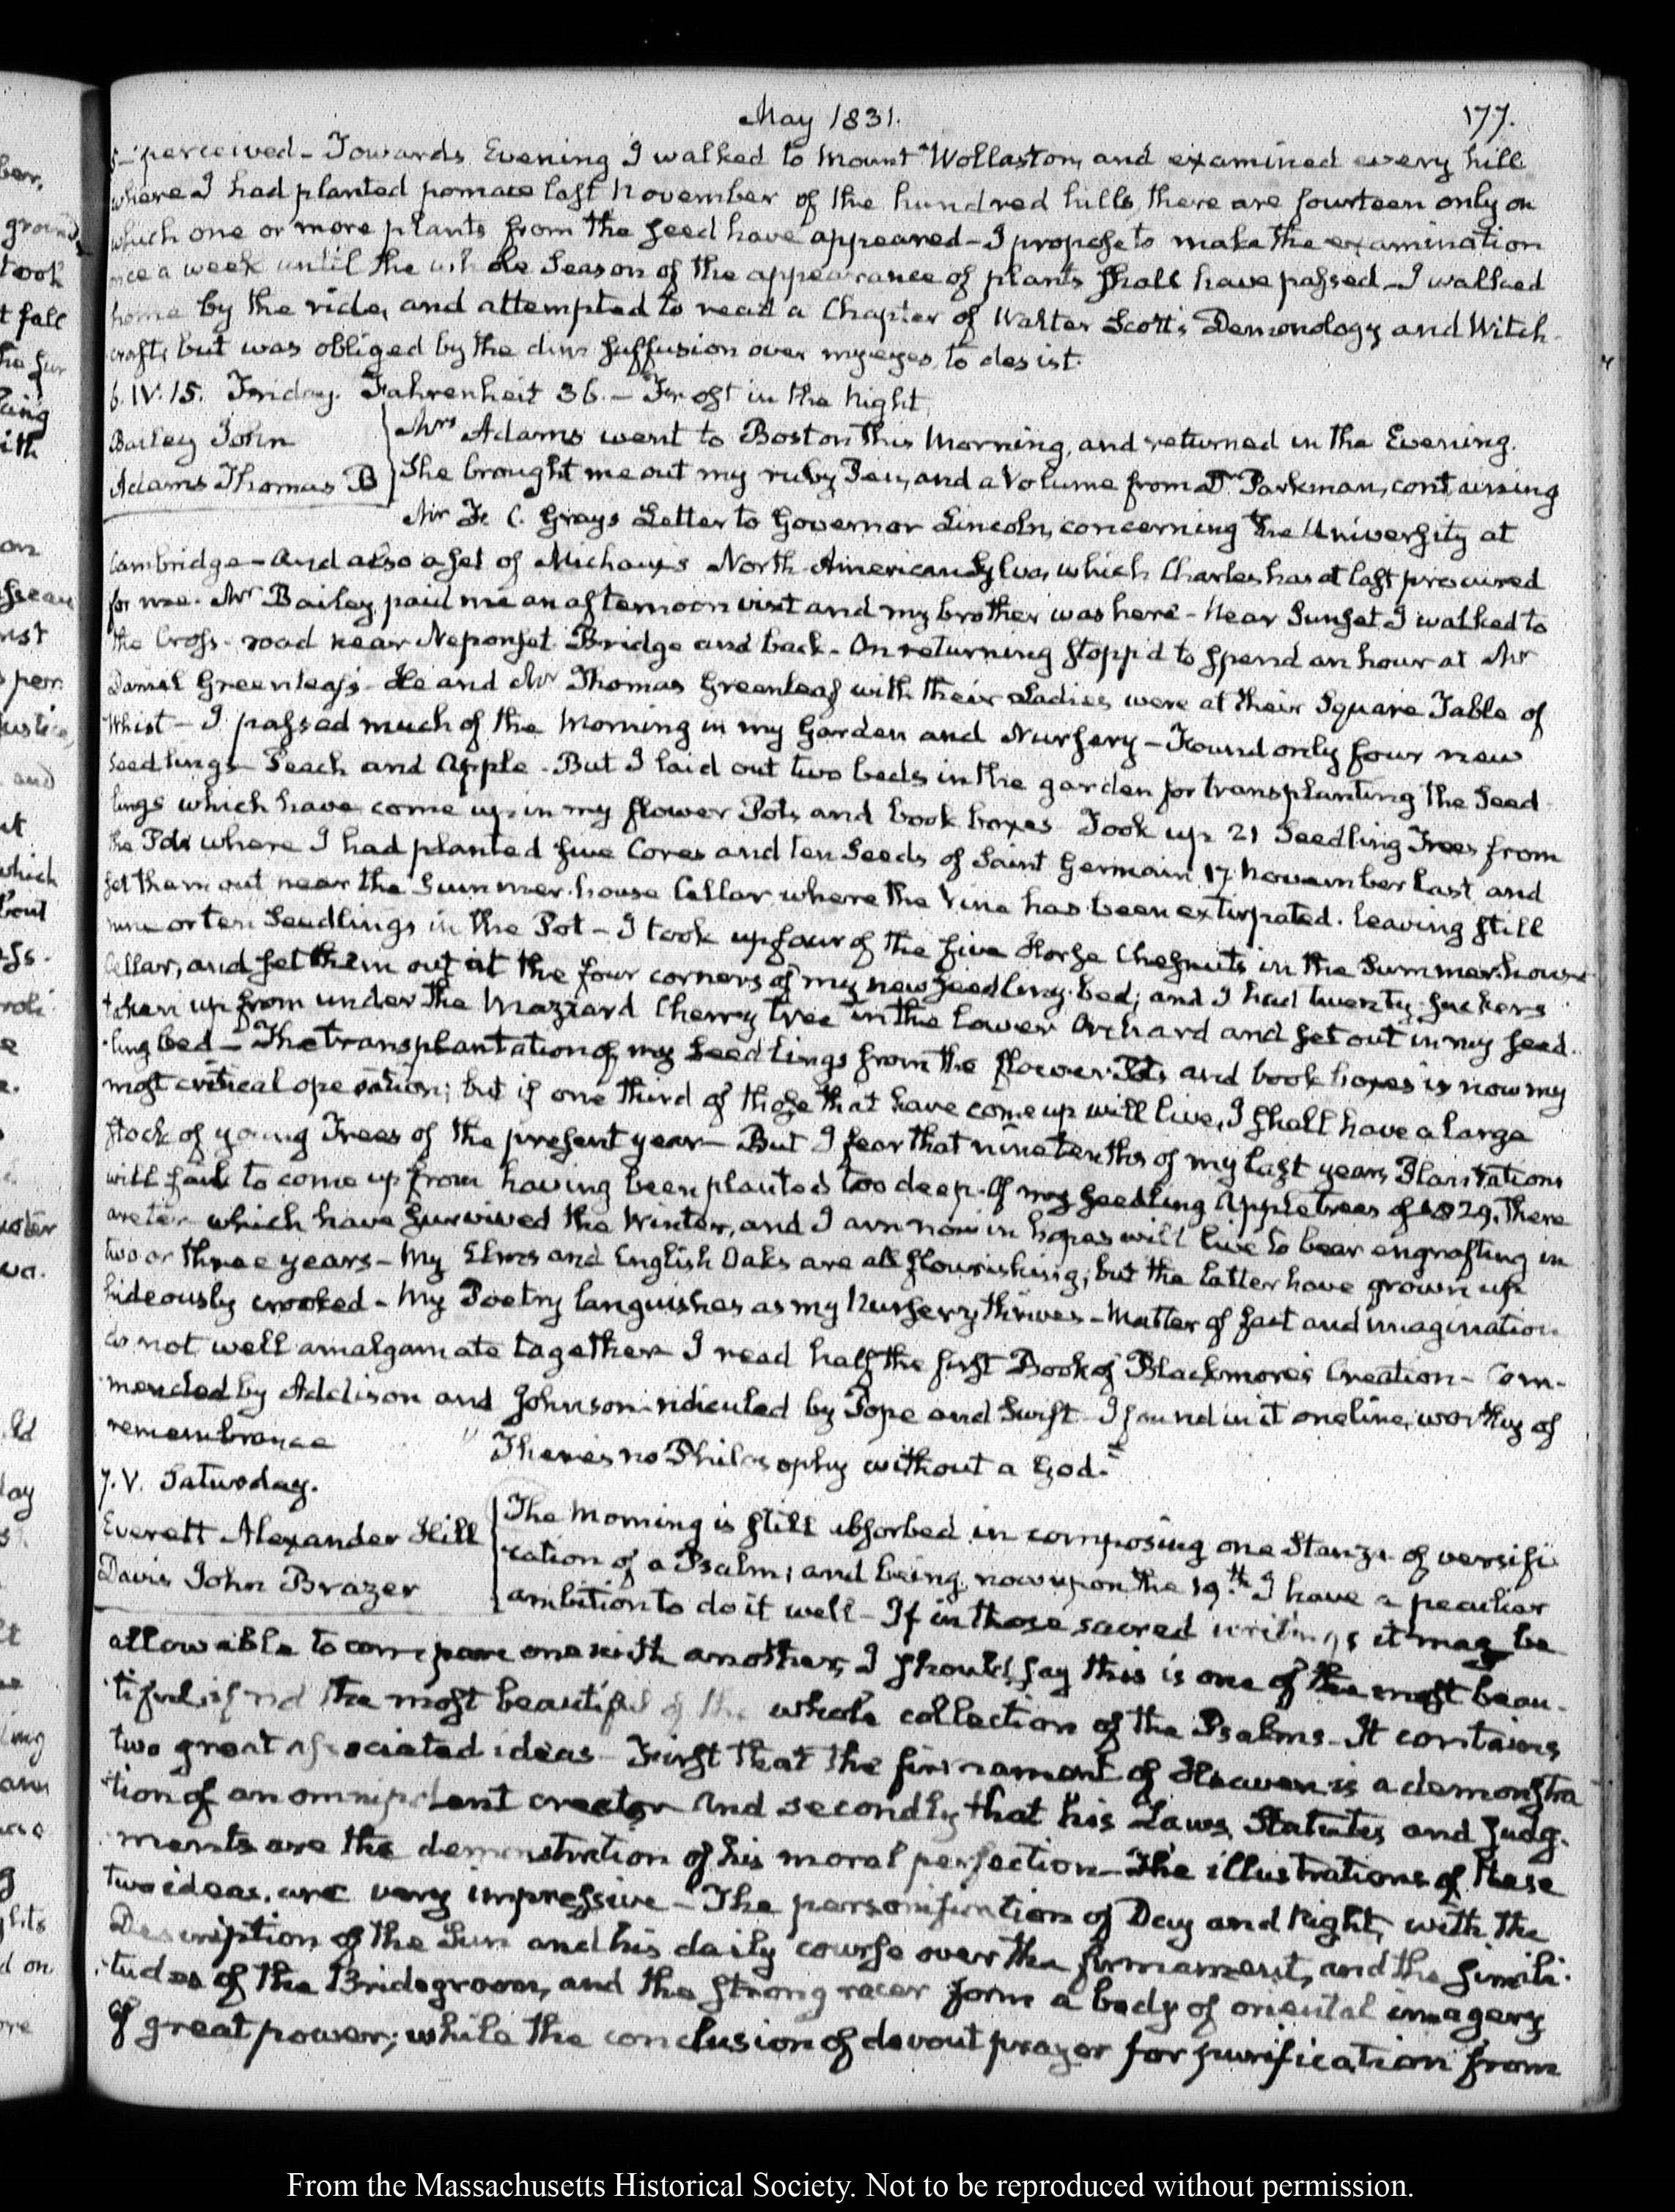 May 1831.
177.
perceived - Towards Evening I walked to Mount Wollaston, and examined every hill
where I had planted pomace last November of the hundred hills, there are fourteen only on
which one or more plants from the seed have appeared - I propose to make the examination
once a week until the whole Season of the appearance of plants shall have passed - I walked
home by the ride, and attempted to read a Chapter of Walter Scott's Demonology and Witch-
crafts but was obliged by the dim suffusion over my eyes, to desist.
6. IV:15. Friday. Fahrenheit 36. - Frost in the Night
Bailey John
Adams Thomas B
Mrs Adams went to Boston this Morning, and returned in the Evening.
She brought me out my ruby Pen, and a Volume from Dr. Parkman, containing
Mr F. C. Grays Letter to Governor Lincoln, concerning the University at
Cambridge - And also a set of Michaux's North American Sylva, which Charles has at last procured
for me. Mr Bailey, paid me an afternoon visit and my brother was here - Near Sunset I walked to
the Cross-road near Neponset Bridge and back - On returning stopp'd to spend an hour at Mr
Daniel Greenleaf's - He and Mr Thomas Greenleaf with their Ladies were at their Square Table of
Whist - I passed much of the Morning in my Garden and Nursery - Found only four new
Seedlings - Peach and Apple - But I laid out two beds in the garden for transplanting the Seed-
lings which have come up in my flower Pots and book boxes Took up 21 Seedling Trees from
the Pots where I had planted five Cores and ten Seeds of Saint Germain 17 November last and
set them out near the Summer-house Cellar where the Vine has been extirpated. leaving still
nine or ten Seedlings in the Pot - I took up four of the five Horse Chesnuts in the Summer-house
Cellar, and set them out at the four corners of my new seedling-bed; and I had twenty suckers
taken up from under the Mazzard Cherry tree in the lower Orchard and set out in my seed-
ling bed - The transplantation of my Seedlings from the flower Pots and book boxes is now my
most critical operation; but if one third of those that have come up will live, I shall have a large
stock of young Trees of the present year - But I fear that nine tenths of my last years Plantations
will fail to come up from having been planted too deep. Of my seedling Apple trees of 1829, there
are ten which have survived the Winter, and I am now in hopes will live to bear engrafting in
two or three years - My Elms and English Oaks are all flourishing; but the latter have grown up
hideously crooked - My Poetry languishes as my Nursery thrives - Matter of fact and imagination
do not well amalgamate together I read half the first Book of Blackmore's Creation - Com-
mended by Addison and Johnson - ridiculed by Pope and Swift - I found in it one line, worthy of
remembrance "There's no Philosophy without a God."
7. V. Saturday.
Everett Alexander Hill
Davis John Brazer
The Morning is still absorbed in composing one Stanza of versifi-
cation of a Psalm; and being now upon the 19.th I have a peculiar
ambition to do it well - If in those sacred writings it may be
allowable to compare one with another, I should say this is one of the most beau-
tiful, if not the most beautiful of the whole collection of the Psalms - It contains
two great associated ideas - First that the firmament of Heaven is a demonstra
tion of an omnipotent creator And secondly that his Laws, Statutes and Judg-
ments are the demonstration of his moral perfection - The illustrations of these
two ideas, are very impressive - The personification of Day and Night, with the
Description of the Sun and his daily course over the firmament, and the simili-
tudes of the Bridegroom, and the strong racer form a body of oriental imagery
of great power; while the conclusion of devout prayer for purification from
From the Massachusetts Historical Society. Not to be reproduced without permission.